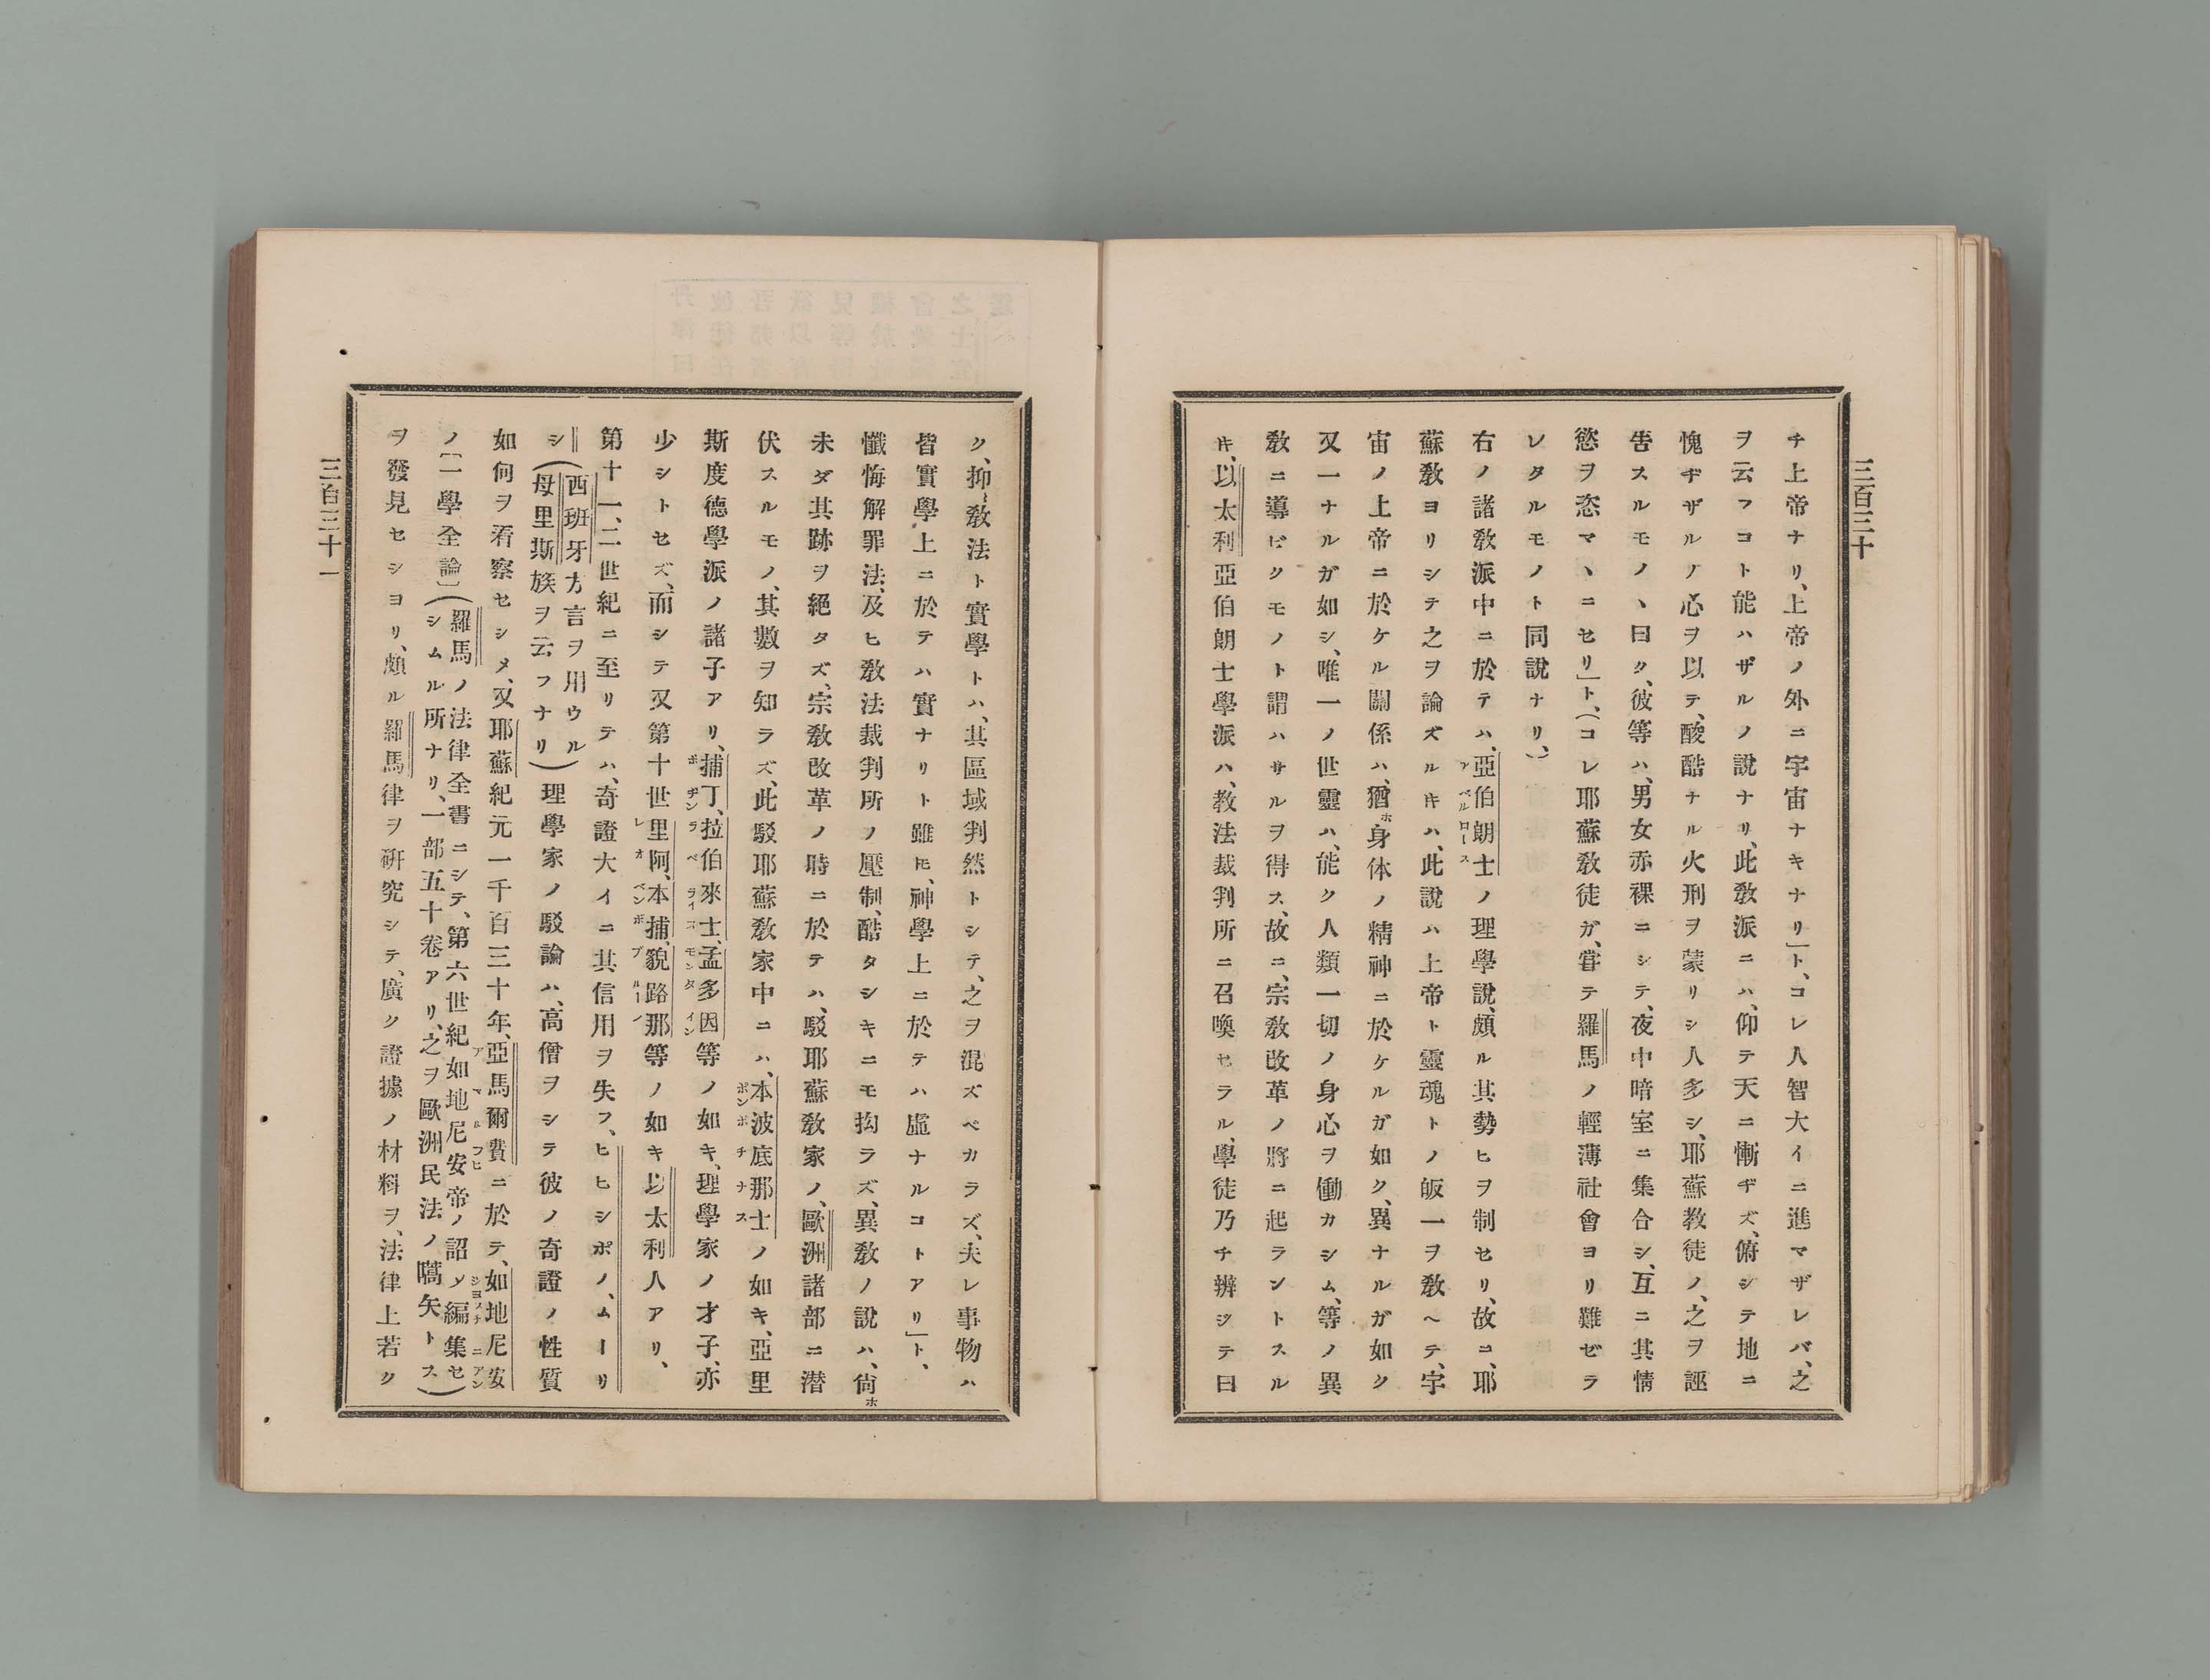 三百三十
チ上帝ナリ、上帝ノ外ニ宇宙ナキナリ」ト、コレ人智大イニ進マザレバ、之
ヲ云フコト能ハザルノ說ナリ、此敎派ニハ、仰テ天ニ慚ヂズ、俯シテ地ニ
愧ヂザルノ心ヲ以テ、酸酷ナル火刑ヲ蒙リシ人多シ、耶蘇教徒ノ、之ヲ誣
吿スルモノヽ曰ク、彼等ハ、男女赤裸ニシテ、夜中暗室ニ集合シ、互ニ其情
慾ヲ恣マヽニセリ」ト、(コレ耶蘇敎徒ガ、甞テ羅馬ノ輕薄社會ヨリ難ゼラ
レタルモノト同說ナリ、)
右ノ諸敎派中ニ於テハ、亞伯朗士ノ理學說、頗ル其勢ヒヲ制セリ、故ニ、耶
アベルロース
蘇敎ヨリシテ之ヲ論ズルキハ、此說ハ上帝ト靈魂トノ皈一ヲ敎ヘテ、宇
宙ノ上帝ニ於ケル關係ハ、猶ホ身体ノ精神ニ於ケルガ如ク、異ナルガ如ク
又一ナルガ如シ、唯一ノ世靈ハ、能ク人類一切ノ身心ヲ働カシム、等ノ異
敎ニ導ビクモノト謂ハサルヲ得ス、故ニ、宗敎改革ノ將ニ起ラントスル
キ、以太利亞伯朗士學派ハ、教法裁判所ニ召喚セラル、學徒乃チ辨ジテ曰
ク、抑〻敎法ト實學トハ、其區域判然トシテ、之ヲ混ズベカラズ、夫レ事物ハ
皆實學上ニ於テハ實ナリト雖モ、神學上ニ於テハ虛ナルコトアリ」ト、
懺悔解罪法、及ヒ敎法裁判所ノ壓制、酷タシキニモ拘ラズ、異敎ノ說ハ、尙ホ
未ダ其跡ヲ絕タズ、宗敎改革ノ時ニ於テハ、駁耶蘇敎家ノ、歐洲諸部ニ潜
伏スルモノ、其數ヲ知ラズ、此駁耶蘇敎家中ニハ、本波底那士ノ如キ、亞里
ポンポチナス
斯度德學派ノ諸子アリ、捕丁、拉伯來士、孟多因等ノ如キ、理學家ノ才子、亦
ボヂンラベライスモンタイン
少シトセズ、而シテ又第十世里阿、本捕、貌路那等ノ如キ以太利人アリ、
レオベンボブルーノ
第十一、二世紀ニ至リテハ、奇證大イニ其信用ヲ失フ、ヒヒシポノ、ムーリ
シ(西班牙方言ヲ用ウル
母里斯族ヲ云フナリ)理學家ノ駁論ハ、高僧ヲシテ彼ノ奇證ノ性質
如何ヲ看察セシメ、又耶蘇紀元一千百三十年、亞馬爾費ニ於テ、如地尼安
アマルフヒジヨスチニアン
ノ〔一學全論〕(羅馬ノ法律全書ニシテ、第六世紀如地尼安帝ノ詔ノ編集セ
シムル所ナリ、一部五十卷アリ、之ヲ歐洲民法ノ嚆矢トス)
ヲ發見セシヨリ、頗ル羅馬律ヲ硏究シテ、廣ク證據ノ材料ヲ、法律上若ク
三百三十一